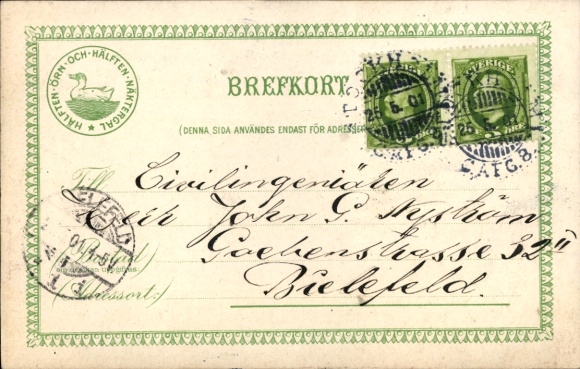 HÄLFTEN·ÖRN·OCH·HÄLFTEN·NÄKTERGAL
BREFKORT
(DENNA SIDA ANVÄNDES ENDAST FÖR
SVERIGE
25 5 01
C. AFG. 8.
Till
Civilingeniören
Herr John G. Nyström
Goebenstrasse 32 II
Bielefeld.
(Adressort:)